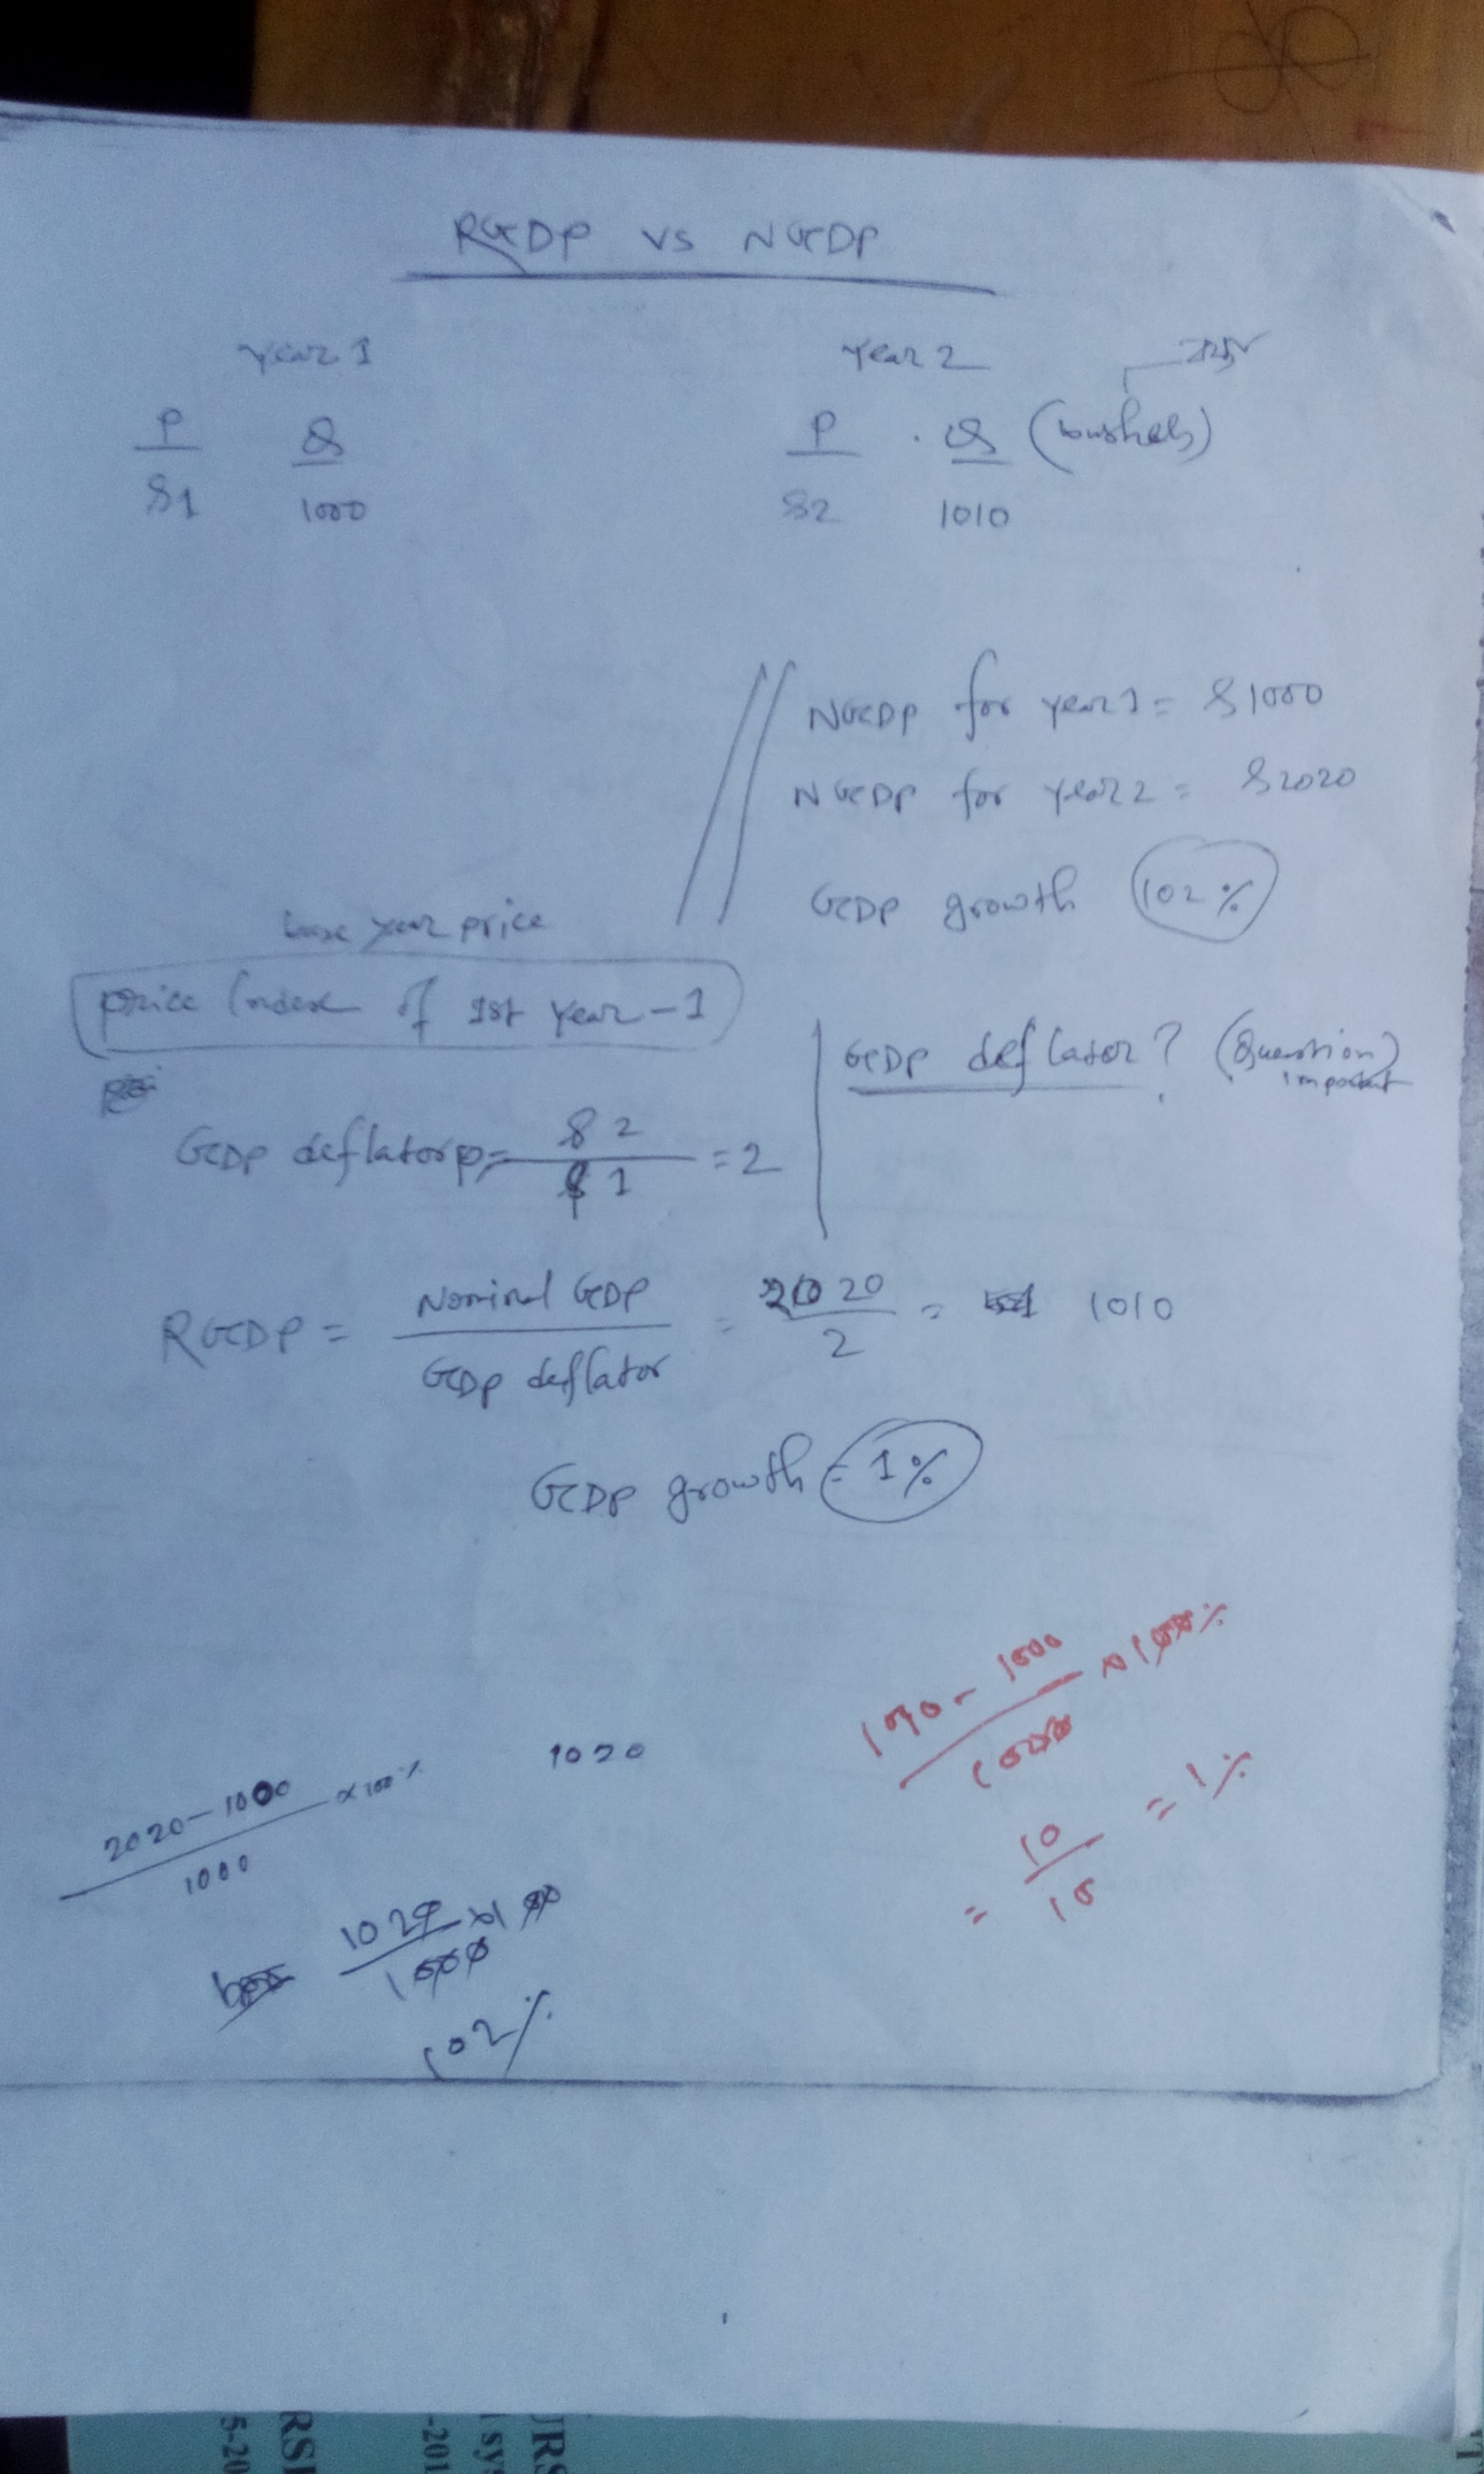 RGDP vs NGDP
Year 1
P Q
$1 1000
Year 2
P Q (bushels)
$2 1010
NGDP for year 1 = $1000
NGDP for year 2 = $2020
GDP growth 102%
base year price
price index of 1st year - 1
GDP deflator? (Question)
important
GDP deflator = $2 / $1 = 2
RGDP = Nominal GDP / GDP deflator = 2020 / 2 = 1010
GDP growth = 1%
1010 - 1000 / 1000 × 100%
= 10 / 10 = 1%
1020
2020 - 1000 / 1000 × 100%
1020 / 1000 × 100
102%